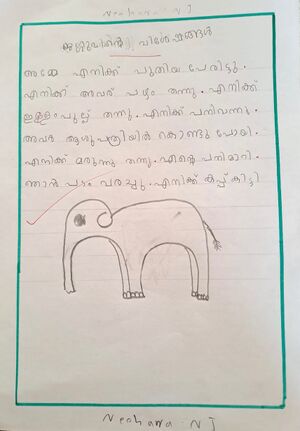 Neohara - N J
കുട്ടുവിന്റെ വിശേഷങ്ങൾ
അമ്മേ എനിക്ക് പുതിയ പേരിട്ടു.
എനിക്ക് അവർ പഴം തന്നു. എനിക്ക്
തന്നു. എനിക്ക് പനിവന്നു.
അവർ ആശുപത്രിയിൽ കൊണ്ടു പോയി.
എനിക്ക് മരുന്നു തന്നു. എന്റെ പനിമാറി.
ഞാൻ പടം വരച്ചു. എനിക്ക് കപ്പ് കിട്ടി
Neohara - N J